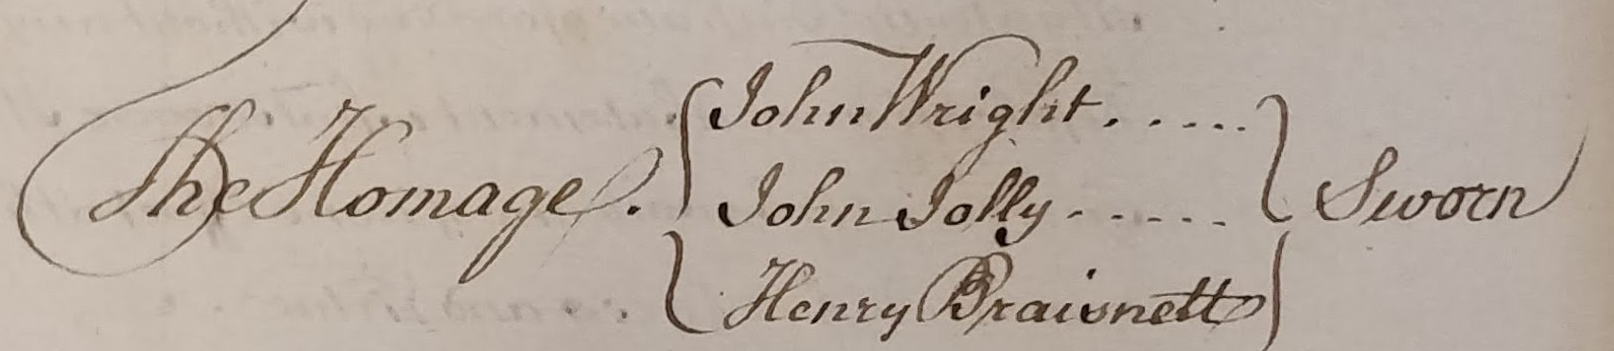 The Homage. { John Wright. . . . . . } Sworn
John Jolly . . . . . .
Henry Braisnett